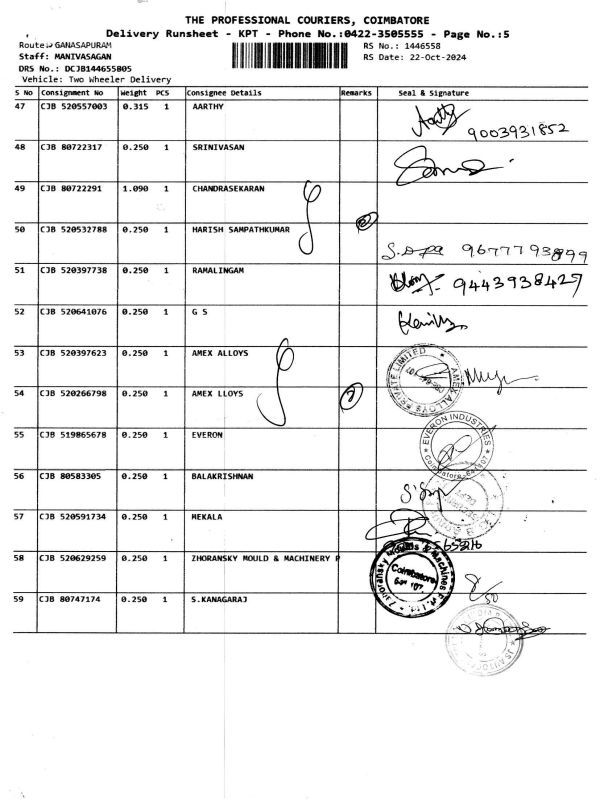 THE PROFESSIONAL COURIERS, COIMBATORE
Delivery Runsheet - KPT - Phone No.:0422-3505555 - Page No.:5
Route: GANASAPURAM RS No.: 1446558
Staff: MANIVASAGAN RS Date: 22-Oct-2024
DRS No.: DCJB144655805
Vehicle: Two Wheeler Delivery
S No Consignment No Weight PCS Consignee Details Remarks Seal & Signature
47 CJB 520557003 0.315 1 AARTHY
9003931852
48 CJB 80722317 0.250 1 SRINIVASAN
49 CJB 80722291 1.090 1 CHANDRASEKARAN
50 CJB 520532788 0.250 1 HARISH SAMPATHKUMAR
9677793899
51 CJB 520397738 0.250 1 RAMALINGAM
9443938427
52 CJB 520641076 0.250 1 G S
53 CJB 520397623 0.250 1 AMEX ALLOYS
AMEX ALLOYS PRIVATE LIMITED
54 CJB 520266798 0.250 1 AMEX LLOYS
2
55 CJB 519865678 0.250 1 EVERON
EVERON INDUSTRIES
56 CJB 80583305 0.250 1 BALAKRISHNAN
57 CJB 520591734 0.250 1 MEKALA
58 CJB 520629259 0.250 1 ZHORANSKY MOULD & MACHINERY P
Coimbatore
59 CJB 80747174 0.250 1 S.KANAGARAJ